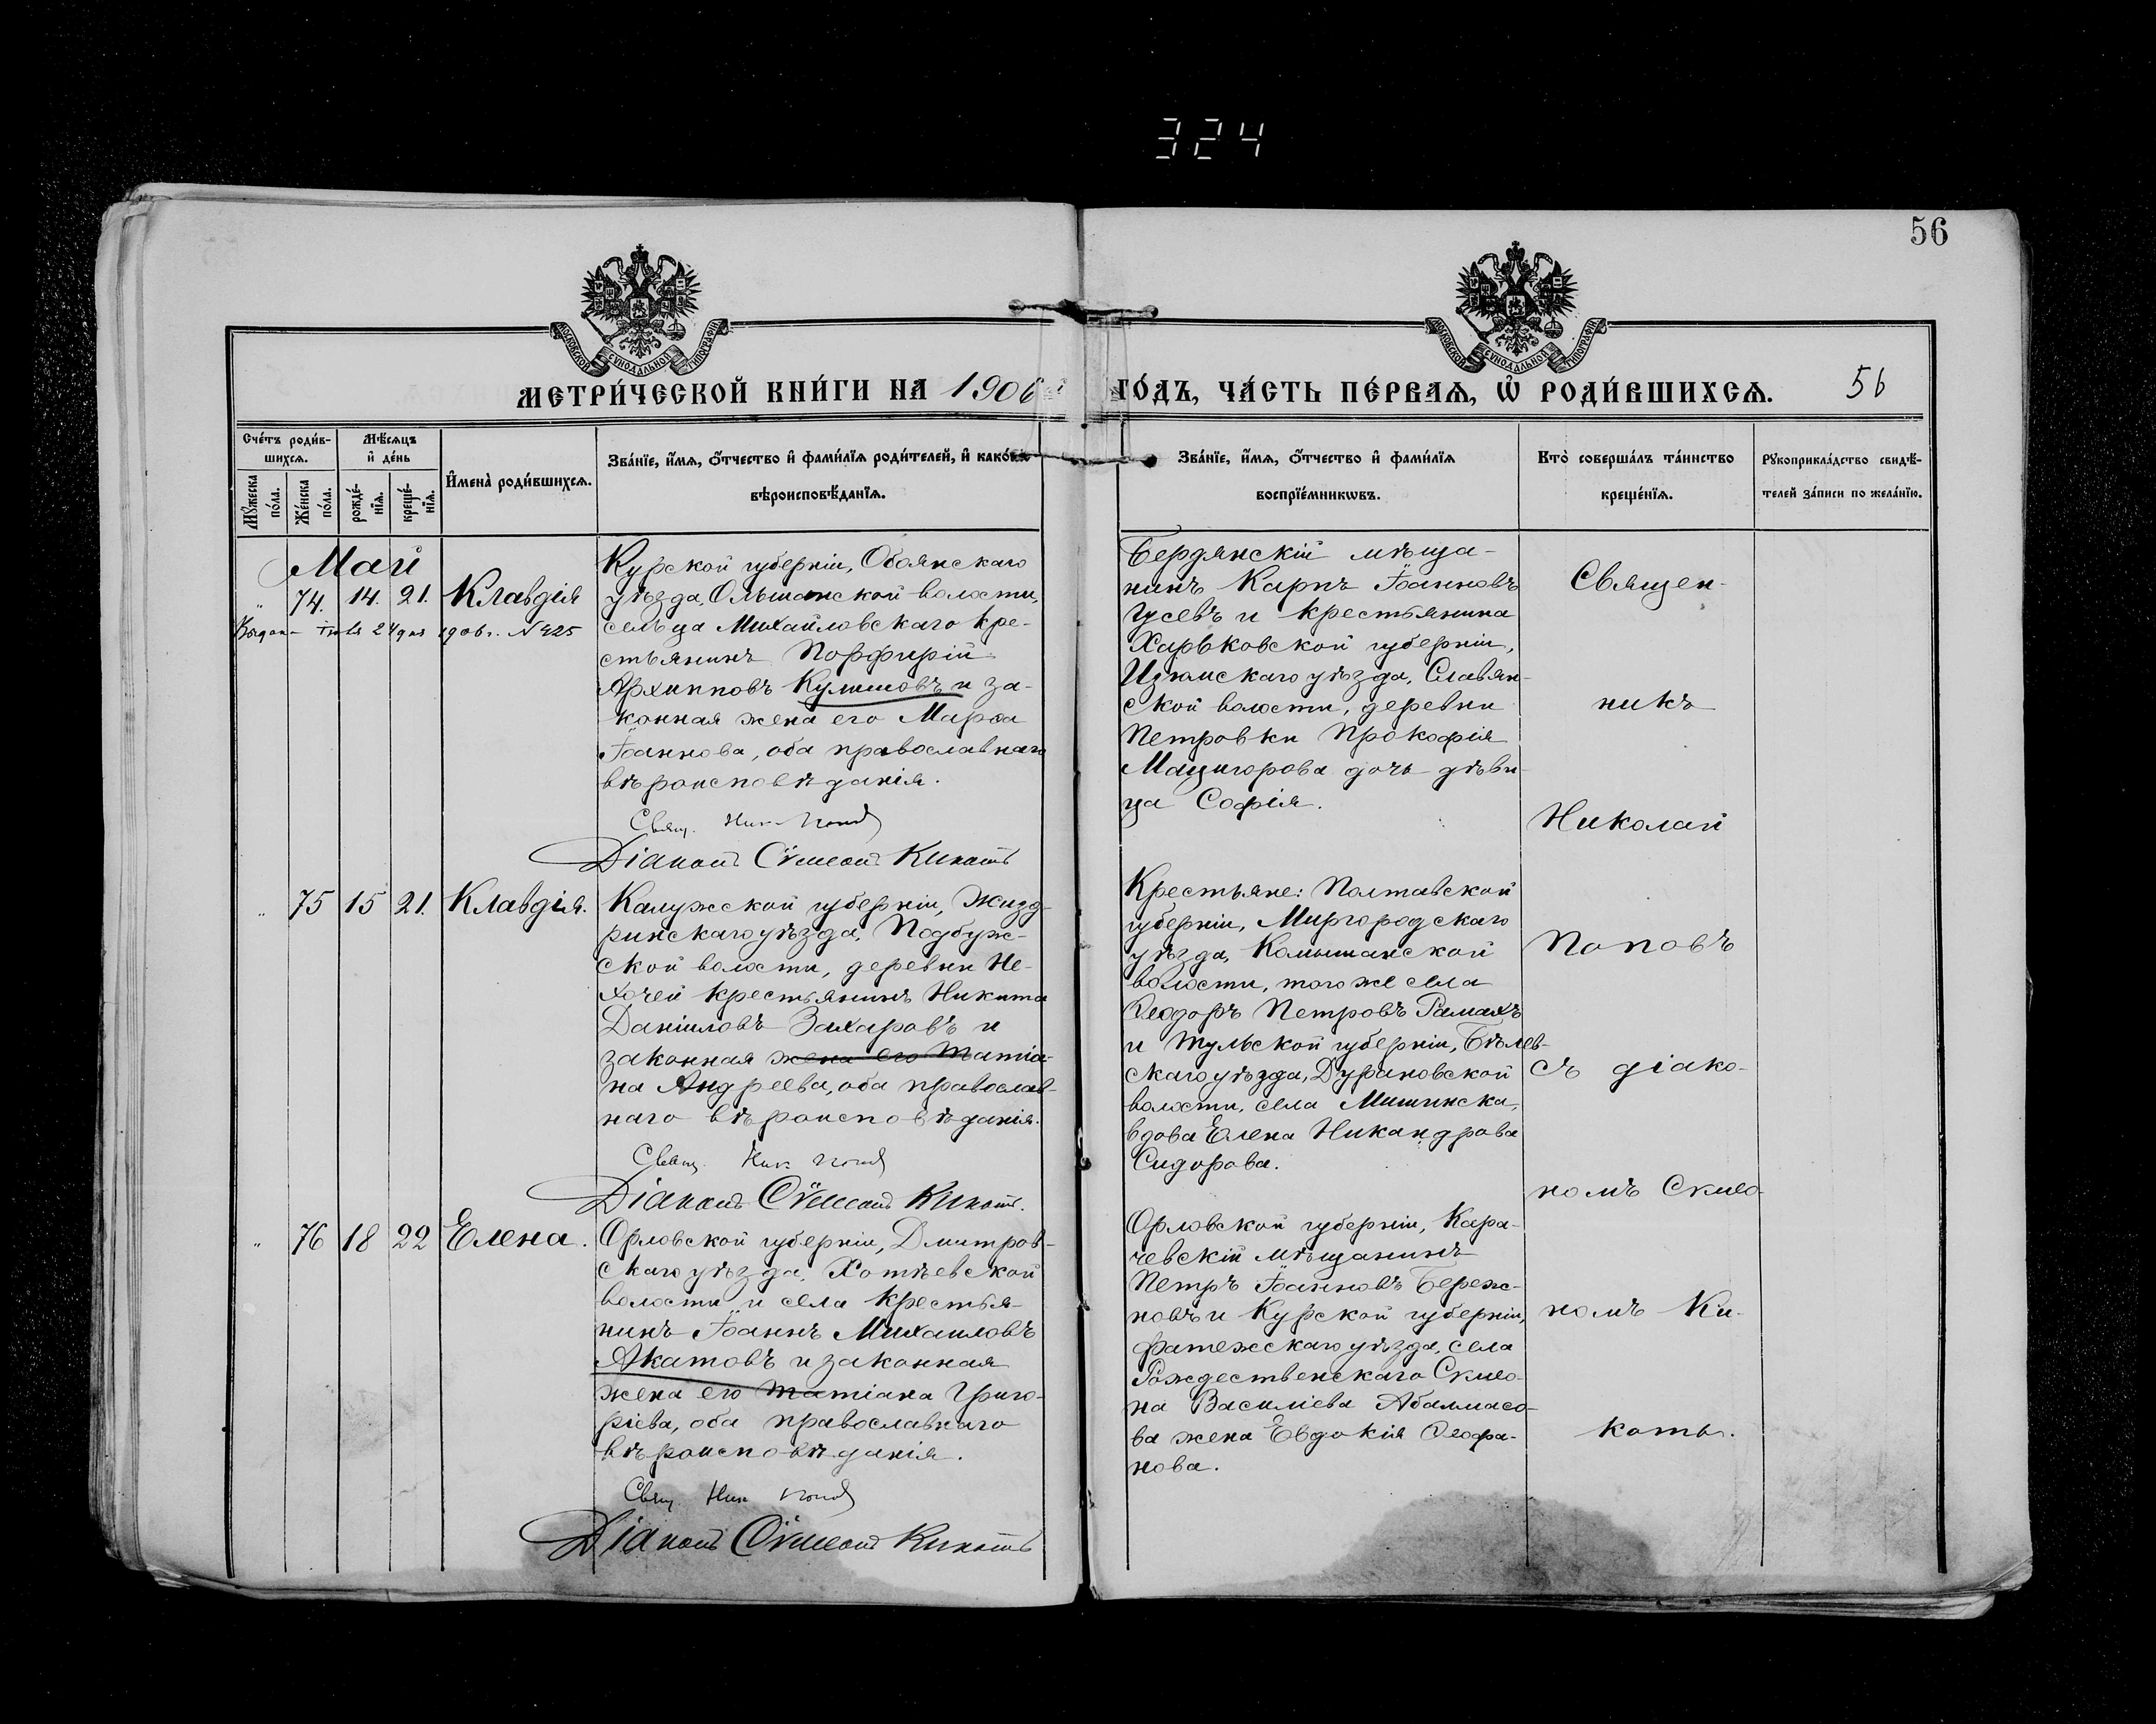 324
56
МОСКОВСКОЙ СѴНОДАЛЬНОЙ ТИПОГРАФІИ
МОСКОВСКОЙ СѴНОДАЛЬНОЙ ТИПОГРАФІИ
МЕТРИ́ЧЕСКОЙ КНИ́ГИ НА 1906
ГО́ДЪ, ЧА́СТЬ ПЕ́РВАЯ, Ѡ҆ РОДИ́ВШИХСЯ.
56
Сче́тъ роди́в-
шихся.
Мѣ́сяцъ
и҆ де́нь
Мꙋ́жеска по́ла.
Же́нска по́ла.
рожде́-
нїя.
креще́-
нїя.
И҆мена̀ роди́вшихся.
Зва́нїе, и҆́мя, ѻ҆́тчество и҆ фами́лїя роди́телей, и҆ како́гѡ
вѣроисповѣ́данїя.
Зва́нїе, и҆́мя, ѻ҆́тчество и҆ фами́лїя
воспрїе́мникѡвъ.
Кто̀ соверша́лъ та́инство
креще́нїя.
Рꙋкоприкла́дство свидѣ́-
телей за́писи по жела́нїю.
Май
" 74. 14. 21. Клавдія
Іюля 24 дня 1906 г. № 425
Курской губерніи, Обоянскаго
уѣзда, Ольшанской волости,
сельца Михайловскаго кре-
стьянинъ Порфирій
Архипповъ Кулишовъ и за-
конная жена его Марѳа
Іоаннова, оба православнаго
вѣроисповѣданія.
Свящ. Ник. Попов
Діаконъ Сѵмеонъ Кикоть
Бердянскій мѣща-
нинъ Карпъ Іоанновъ
Гусевъ и крестьянина
Харьковской губерніи,
Изюмскаго уѣзда, Славян-
ской волости, деревни
Петровки Прокофія
Мацигорова дочь дѣви-
ца Софія.
" 75 15 21. Клавдія.
Калужской губерніи, Жизд-
ринскаго уѣзда, Подбуж-
ской волости, деревни Не-
хочей крестьянинъ Никита
Даніиловъ Захаровъ и
законная жена его Татіа-
на Андреева, оба православ-
наго вѣроисповѣданія.
Свящ. Ник. Попов
Діаконъ Сѵмеонъ Кикоть.
Крестьяне: Полтавской
губерніи, Миргородскаго
уѣзда, Комышанской
волости, того же села
Ѳеодоръ Петровъ Рамахъ
и Тульской губерніи, Бѣлев-
скаго уѣзда, Дурановской
волости, села Мишенска,
вдова Елена Никандрова
Сидорова.
" 76 18 22 Елена.
Орловской губерніи, Дмитров-
скаго уѣзда, Хотѣевской
волости и села крестья-
нинъ Іоаннъ Михаиловъ
Акатовъ и законная
жена его Татіана Григо-
ріева, оба православнаго
вѣроисповѣданія.
Свящ. Ник. Попов
Діаконъ Сѵмеонъ Кикоть
Орловской губерніи, Кара-
чевскій мѣщанинъ
Петръ Іоанновъ Береж-
новъ и Курской губерніи,
Фатежскаго уѣзда, села
Рождественскаго Сѵмео-
на Василіева Абалмасо-
ва жена Евдокія Ѳеофа-
нова.
Священ-
никъ
Николай
Поповъ
съ діако-
номъ Сѵмео-
номъ Ки-
коть.